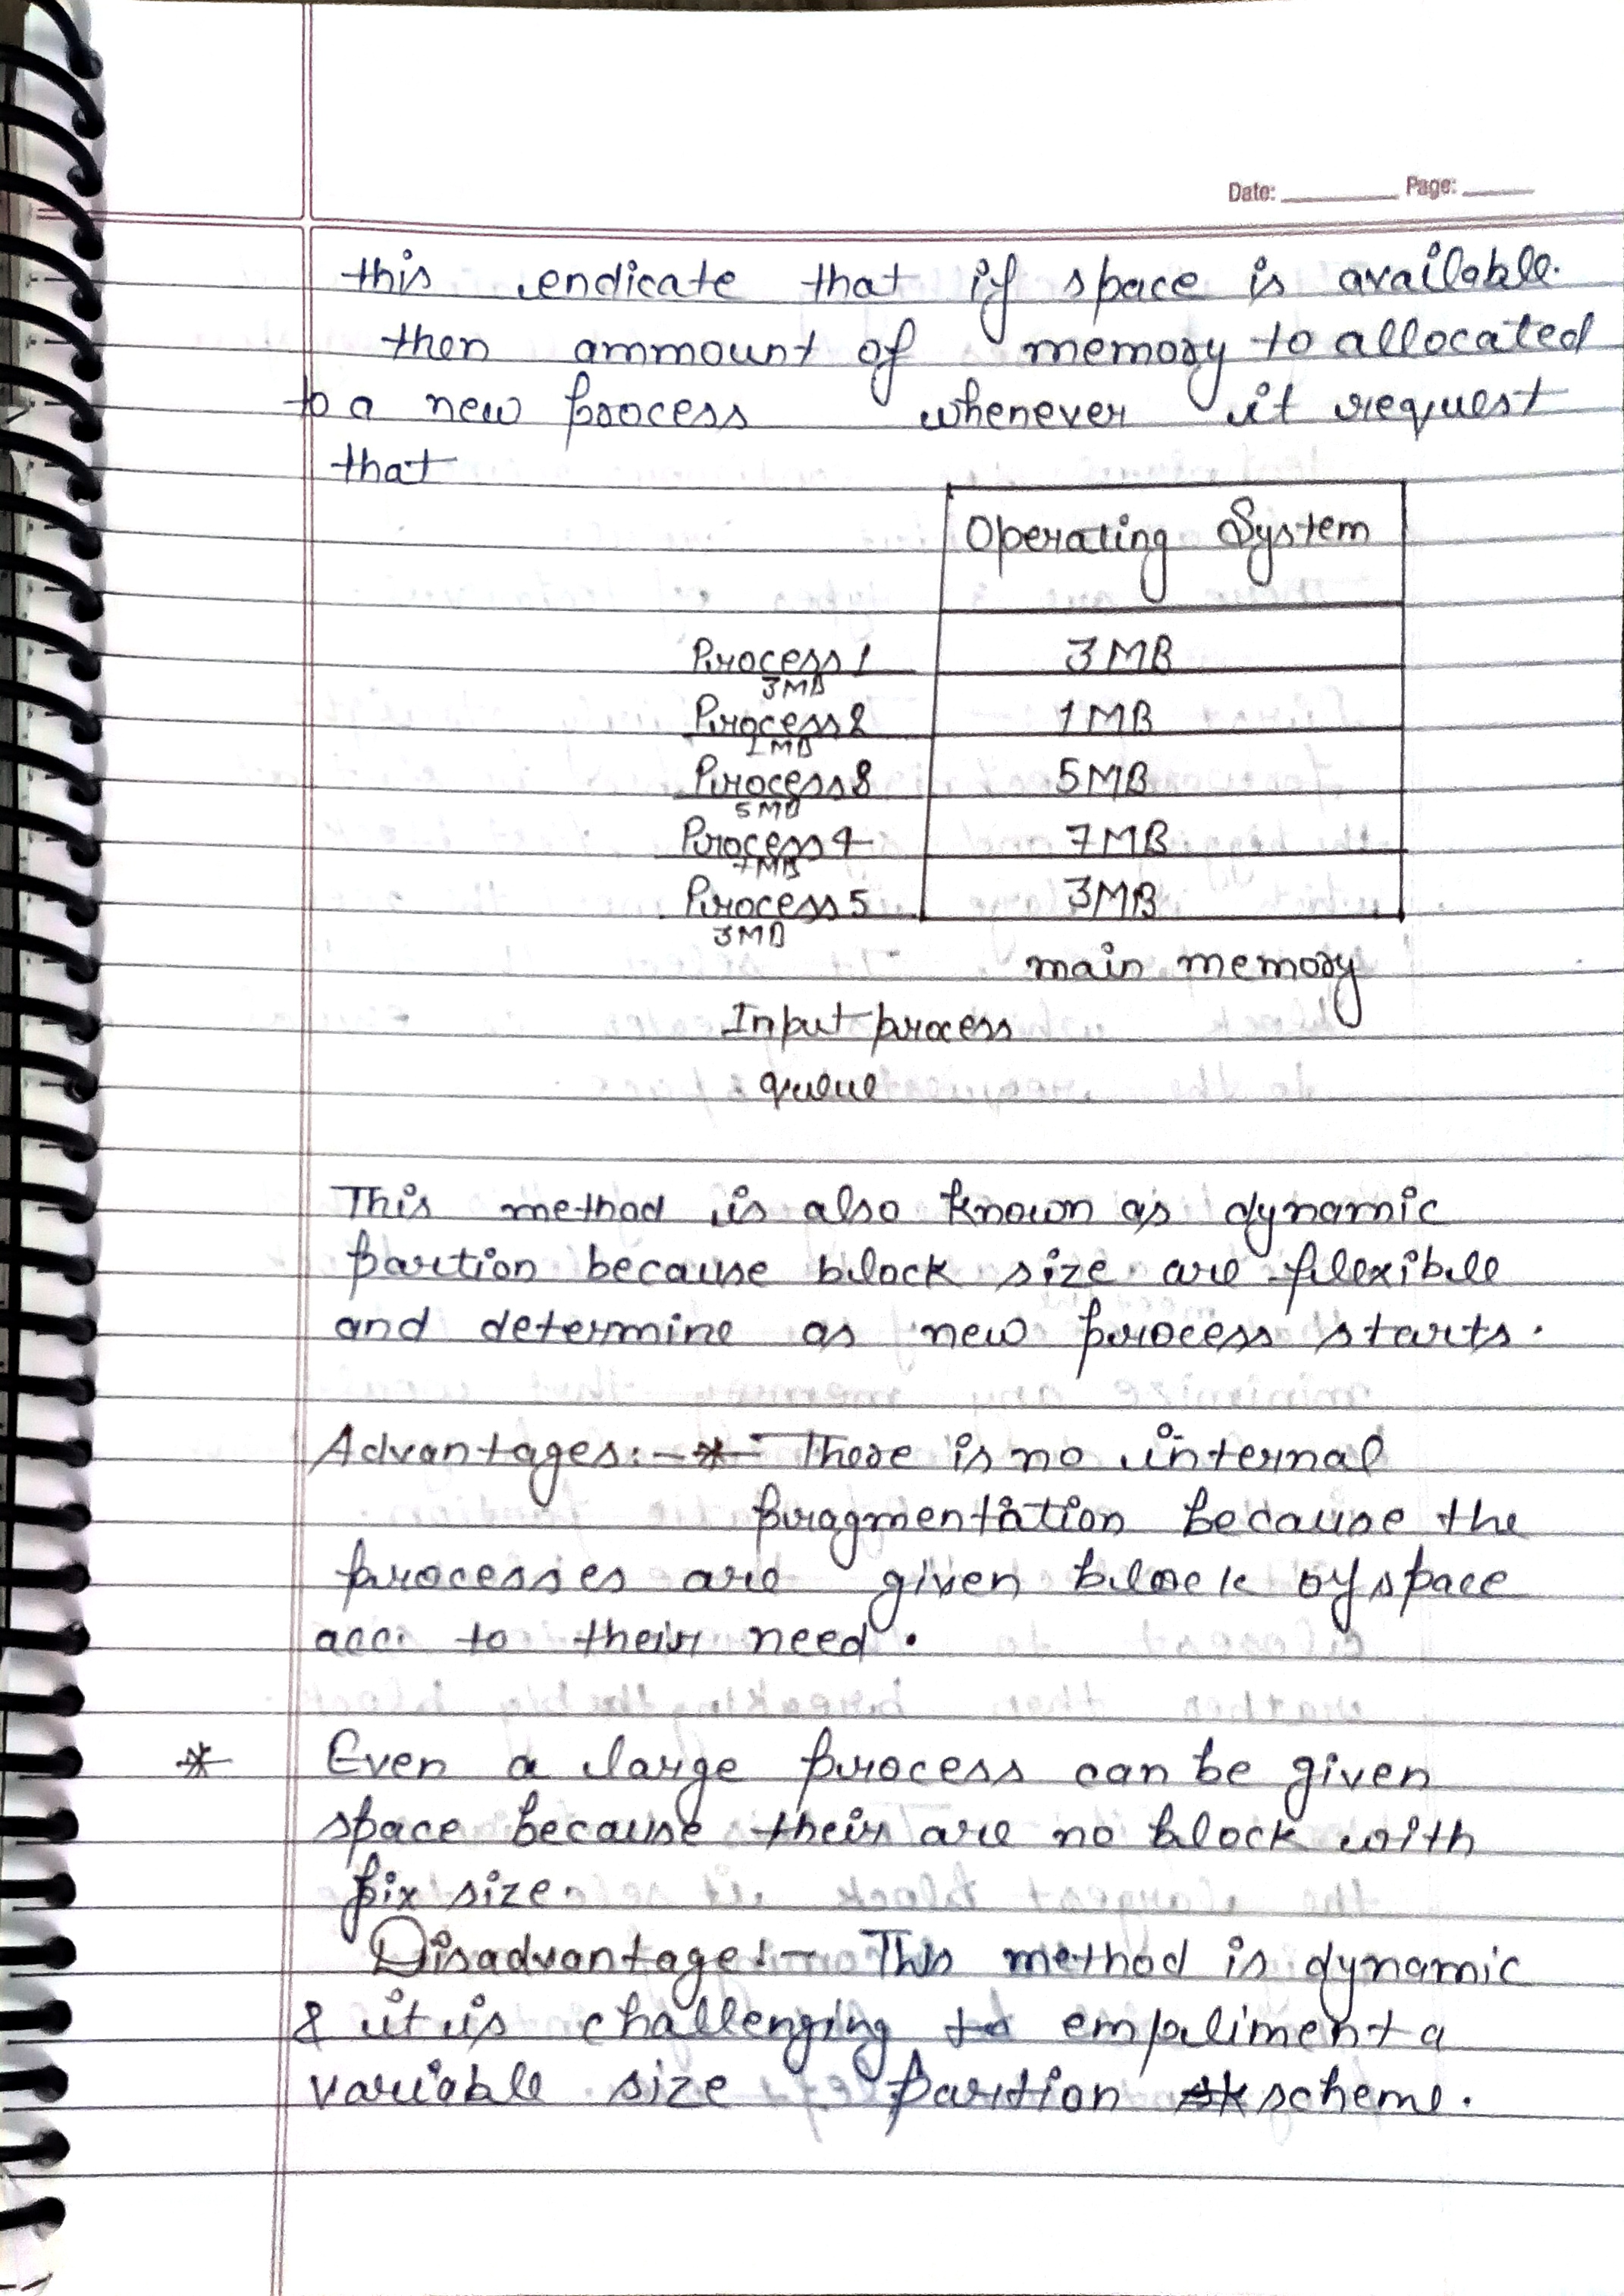 Date: Page:
this endicate that if space is available.
then ammount of memory to allocated
to a new process whenever it request
that
Operating System
Process 1 3 MB
3MB
Process 2 1 MB
1 MB
Process 3 5 MB
5 MB
Process 4 7 MB
7 MB
Process 5 3 MB
3 MB
main memory
Input process
queue
This method is also known as dynamic
partion because block size are flexible
and determine as new process starts.
Advantages:- * There is no internal
fragmentation because the
processes are given block of space
acc. to their need.
* Even a large process can be given
space because their are no block with
fix size.
Disadvantage:- This method is dynamic
& it is challenging to empliment a
variable size partion scheme.